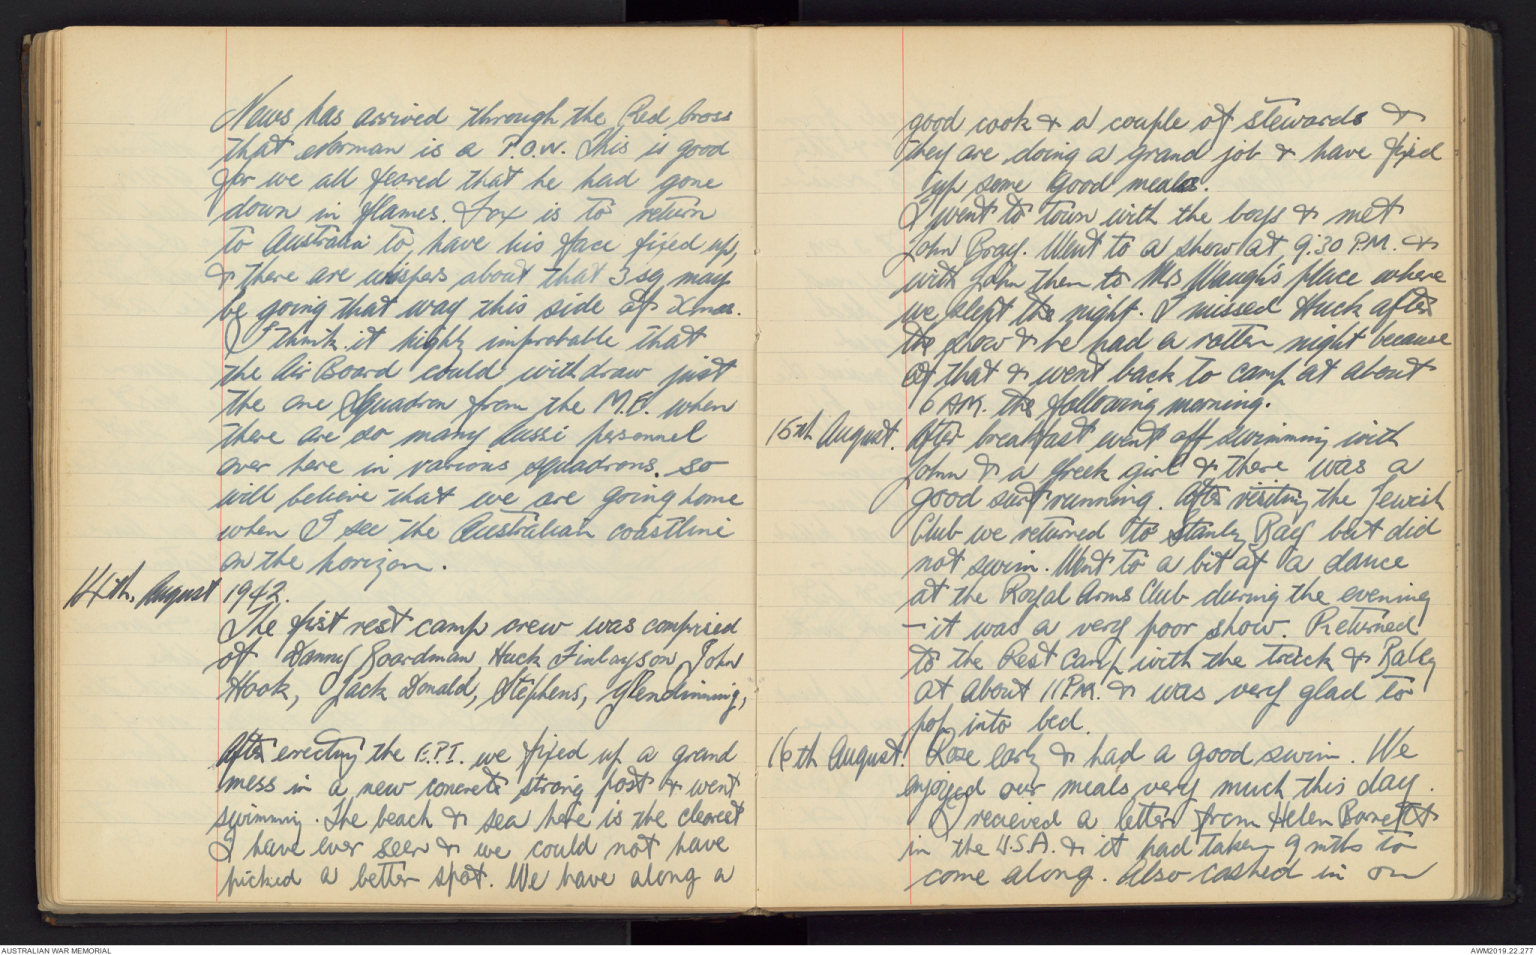 News has arrived through the Red Cross
that Norman is a P.O.W. This is good
for we all feared that he had gone
down in flames. Fox is to return
to Australia to, have his face fixed up,
& there are wispers about that 3 sq may
be going that way this side of Xmas.
I think it highly improbable that
the Air Board could withdraw just
the one Squadron from the M.E. when
there are so many Aussi personnel
over here in various squadrons. so
will believe that we are going home
when I see the Australian coastline
on the horizon.
14th. August 1942.
The fist rest camp crew was comprised
of Danny Boardman, Huck Finlayson, John
Hook, Jack Donald, Stephens, Glendinning,
After erecting the E.P.I. we fixed up a grand
mess in a new concrete strong post & went
swimming. The beach & sea here is the clearest
I have ever seen & we could not have
picked a better spot. We have along a
good cook & a couple of stewards &
they are doing a grand job & have fixed
up some good meals.
I went to town with the boys & met
John Bray. Went to a show at 9.30 P.M. &
with John then to Mrs Waugh's place where
we slept the night. I missed Huck after
the show & he had a rotten night because
of that & went back to camp at about
6 AM. the following morning.
15th August. After breakfast went off swimming with
John & a Greek girl & there was a
good surf running. After visiting the Jewish
Club we returned to Stanley Bay but did
not swim. Went to a bit of a dance
at the Royal Arms Club during the evening
- it was a very poor show. Returned
to the Rest Camp with the truck &
at about 11 P.M. & was very glad to
pop into bed.
16th August. Rose early & had a good swim. We
enjoyed our meals very much this day.
I recieved a letter from Helen Barrett
in the U.S.A. & it had taken 9 mths to
come along. Also cashed in on
AUSTRALIAN WAR MEMORIAL
AWM2019.22.277